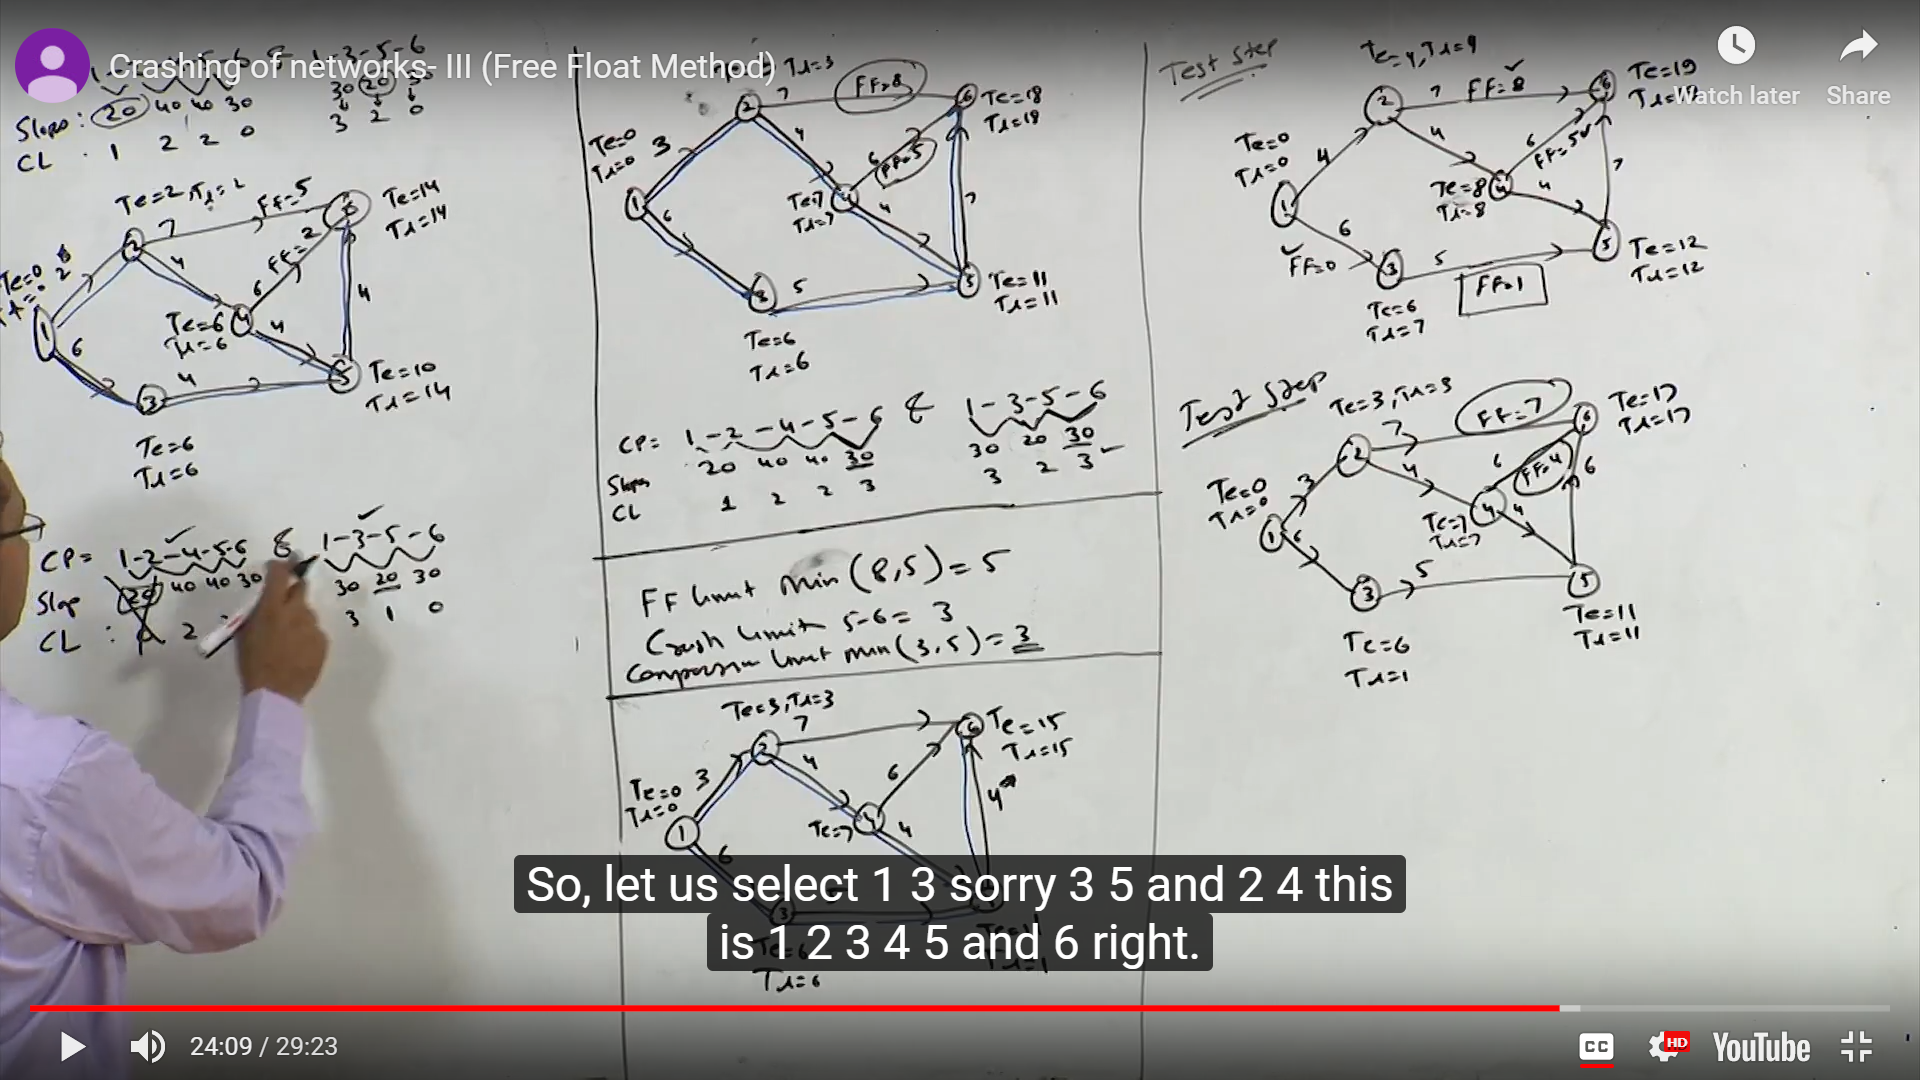 Crashing of networks- III (Free Float Method)
Watch later
Share
1-3-5-6
30 20 30
3 2 0
Slope: 20 40 40 30
CL : 1 2 2 0
Te=2, TL=2
FF=5
Te=14
TL=14
7
2
6
Te=0
2
4
FF=2
6
4
Te=6
TL=6
4
4
1
6
3
4
5
Te=10
TL=14
Te=6
TL=6
CP= 1-2-4-5-6 & 1-3-5-6
Slop 20 40 40 30 30 20 30
CL : 2 3 1 0
TL=3
7
FF=8
6
Te=18
TL=18
Te=0
TL=0
3
2
4
6
FF=5
Te=7
TL=7
4
4
7
1
6
3
5
5
Te=11
TL=11
Te=6
TL=6
CP= 1-2-4-5-6 & 1-3-5-6
Slope 20 40 40 30 30 20 30
CL 1 2 2 3 3 2 3
FF limit min (8,5) = 5
Crash limit 5-6 = 3
Comparison limit min (3,5) = 3
Te=3, TL=3
7
Te=15
TL=15
2
6
Te=0
TL=0
3
4
6
4
1
Te=7
4
4
6
3
TL=6
Test Step
Te=4, TL=4
7
FF=8
6
Te=19
2
Te=0
TL=0
4
4
6
FF=5
7
Te=8
TL=8
4
4
1
6
FF=0
3
5
FF=1
5
Te=12
TL=12
Te=6
TL=7
Test Step
Te=3, TL=3
FF=7
6
Te=17
TL=17
7
2
4
6
FF=4
6
Te=0
TL=0
3
Te=7
TL=7
4
4
1
6
3
5
5
Te=11
TL=11
Te=6
TL=1
So, let us select 1 3 sorry 3 5 and 2 4 this
is 1 2 3 4 5 and 6 right.
24:09 / 29:23
CC
HD
YouTube